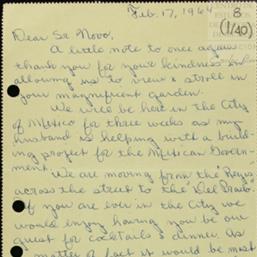 Feb. 17, 1964
8
(1/40)
Dear Sr Novo,
A little note to once again
thank you for your kindness in
allowing us to view & stroll in
your magnificent garden.
We will be here in the City
of Mexico for three weeks as my
husband is helping with a build-
ing project for the Mexican Govern-
ment.
We are moving from the Regis
across the street to the Del Prado.
If you are ever in the City we
would enjoy having you be our
guest for cocktails & dinner. As
matter of fact it would be most